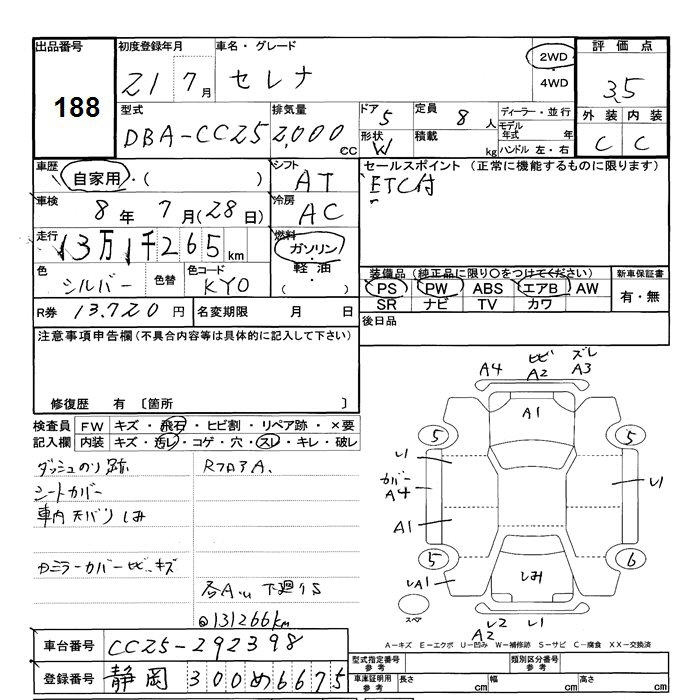 出品番号 初度登録年月 車名・グレード 2WD 4WD 評価点
188
21 7月 セレナ 3.5
型式 排気量 ドア 5 定員 8人 ディーラー・並行 外装 内装
DBA-CC25 2,000cc 形状 W 積載 kg モデル年式 年 C C
ハンドル 左・右
車歴 自家用・( ) シフト AT セールスポイント(正常に機能するものに限ります)
車検 8年 7月(28日) 冷房 AC ETC付
走行 13万1千265km 燃料 ガソリン・軽油・
色 シルバー 色替 色コード KY0 装備品(純正品に限り○をつけてください) 新車保証書
PS PW ABS エアB AW 有・無
SR ナビ TV カワ
R券 13.720円 名変期限 月 日 後日品
注意事項申告欄(不具合内容等は具体的に記入して下さい)
修復歴 有〔箇所 〕
検査員 FW キズ・飛石・ヒビ割・リペア跡・×要
記入欄 内装 キズ・汚レ・コゲ・穴・スレ・キレ・破レ
ダッシュのり跡 RフロアA、
シートカバー
車内天バリしみ
ヒビ、キズ
下廻りS
@131266km
A4 ヒビ A2 ズレ A3
A1
5 5
カバー A4
A1
5 6
しみ
スペア
A2
A-キズ E-エクボ U-凹み W-補修跡 S-サビ C-腐食 XX-交換済
車台番号 CC25-292398
登録番号 静岡 300 め 6675
型式指定番号 参考 類別区分番号 参考
車庫証明用 参考 長さ cm 幅 cm 高さ cm